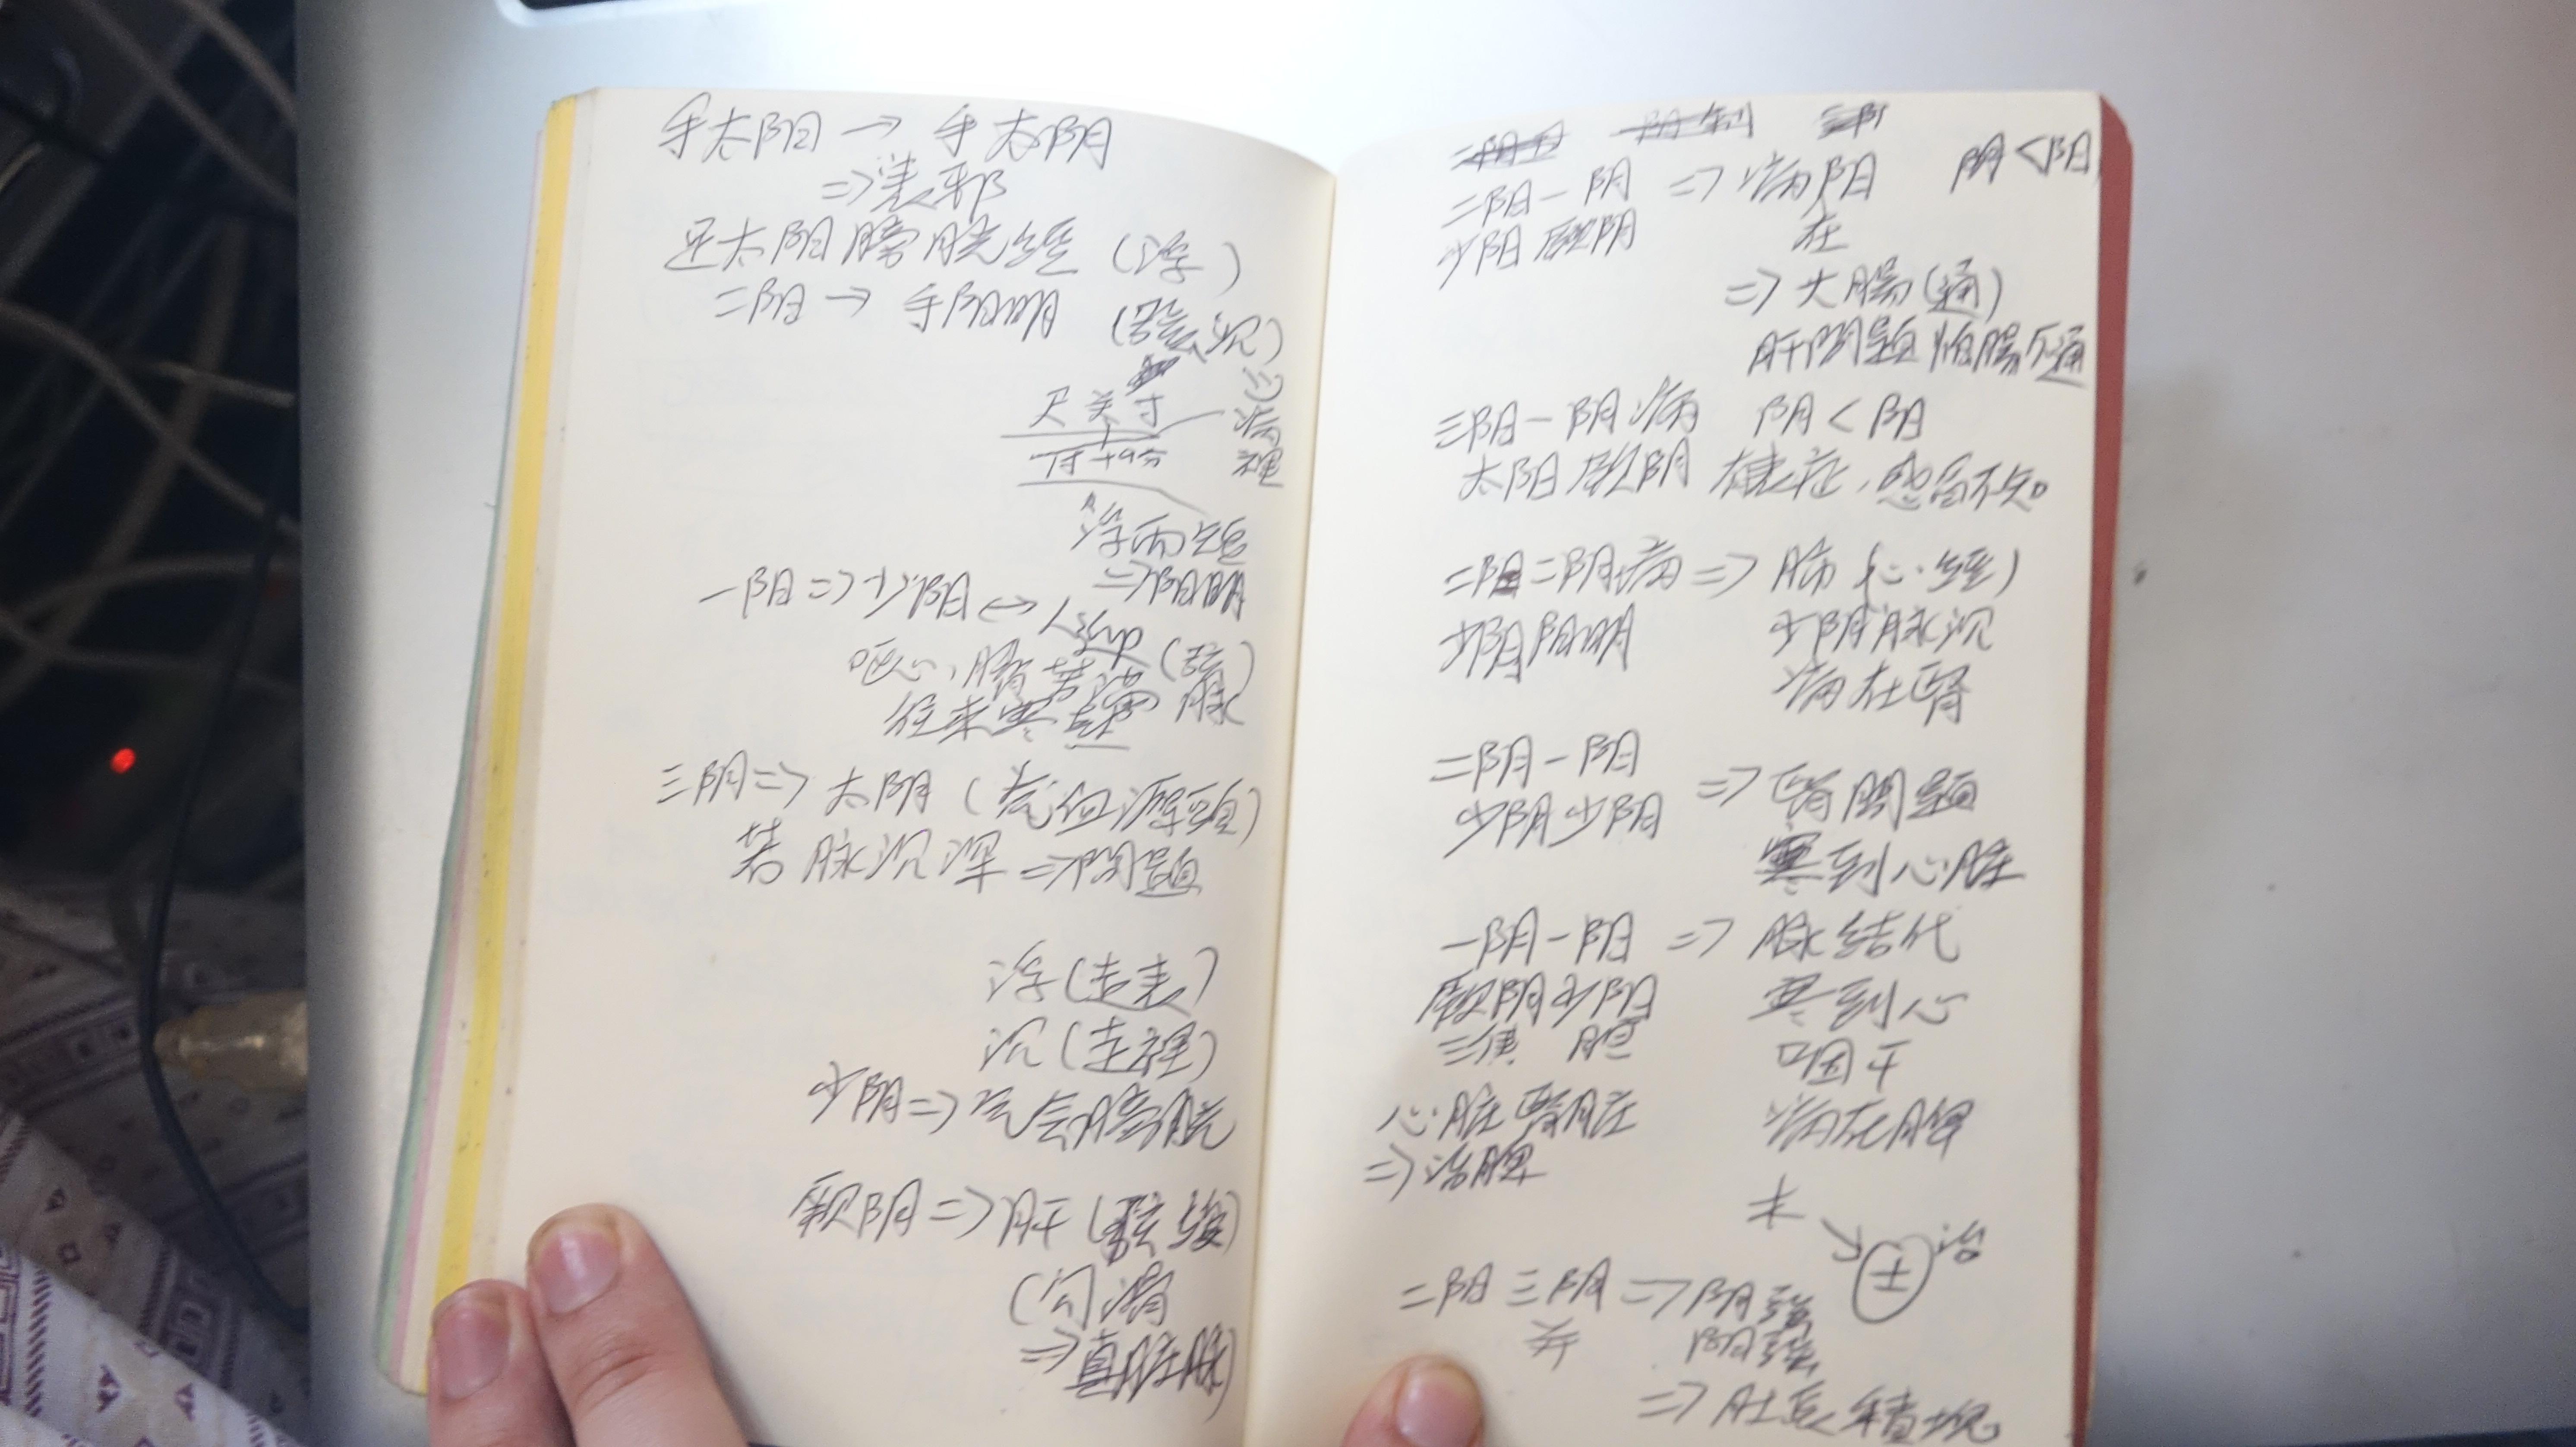 手太阳 → 手太阴
⇒ 表邪
足太阳膀胱经 (浮)
二阳 → 手阳明 (弦沉)
尺关寸
病
裡
浮而短
⇒ 阳明
一阳 ⇒ 少阳 ↔
呕心、胸苦满 (弦脉)
往来寒热
三阴 ⇒ 太阴 (气血源頭)
若脉沉深 ⇒ 問題
浮 (走表)
沉 (走裡)
少阴 ⇒ 气会膀胱
厥阴 ⇒ 肝 (弦缓)
(勾滑
⇒ 真脏脉)
二阳一阴 ⇒ 病阳 阴<阳
少阳厥阴 在
⇒ 大腸 (通)
肝問題怕腸不通
三阳一阴病 阴<阳
太阳厥阴 感冒不完。
二阳二阴病 ⇒ 肺 (心经)
少阴阳明 少阴脉沉
病在腎
二阴一阳
少阴少阳 ⇒ 腎問題
寒到心脏
一阴一阳 ⇒ 脉结代
厥阴少阳 寒到心
三焦 胆 咽干
心脏腎脏 病在脾
⇒ 治脾
木
土 治
二阳三阴 ⇒ 阴強
并 阳強
⇒ 肚長積塊。